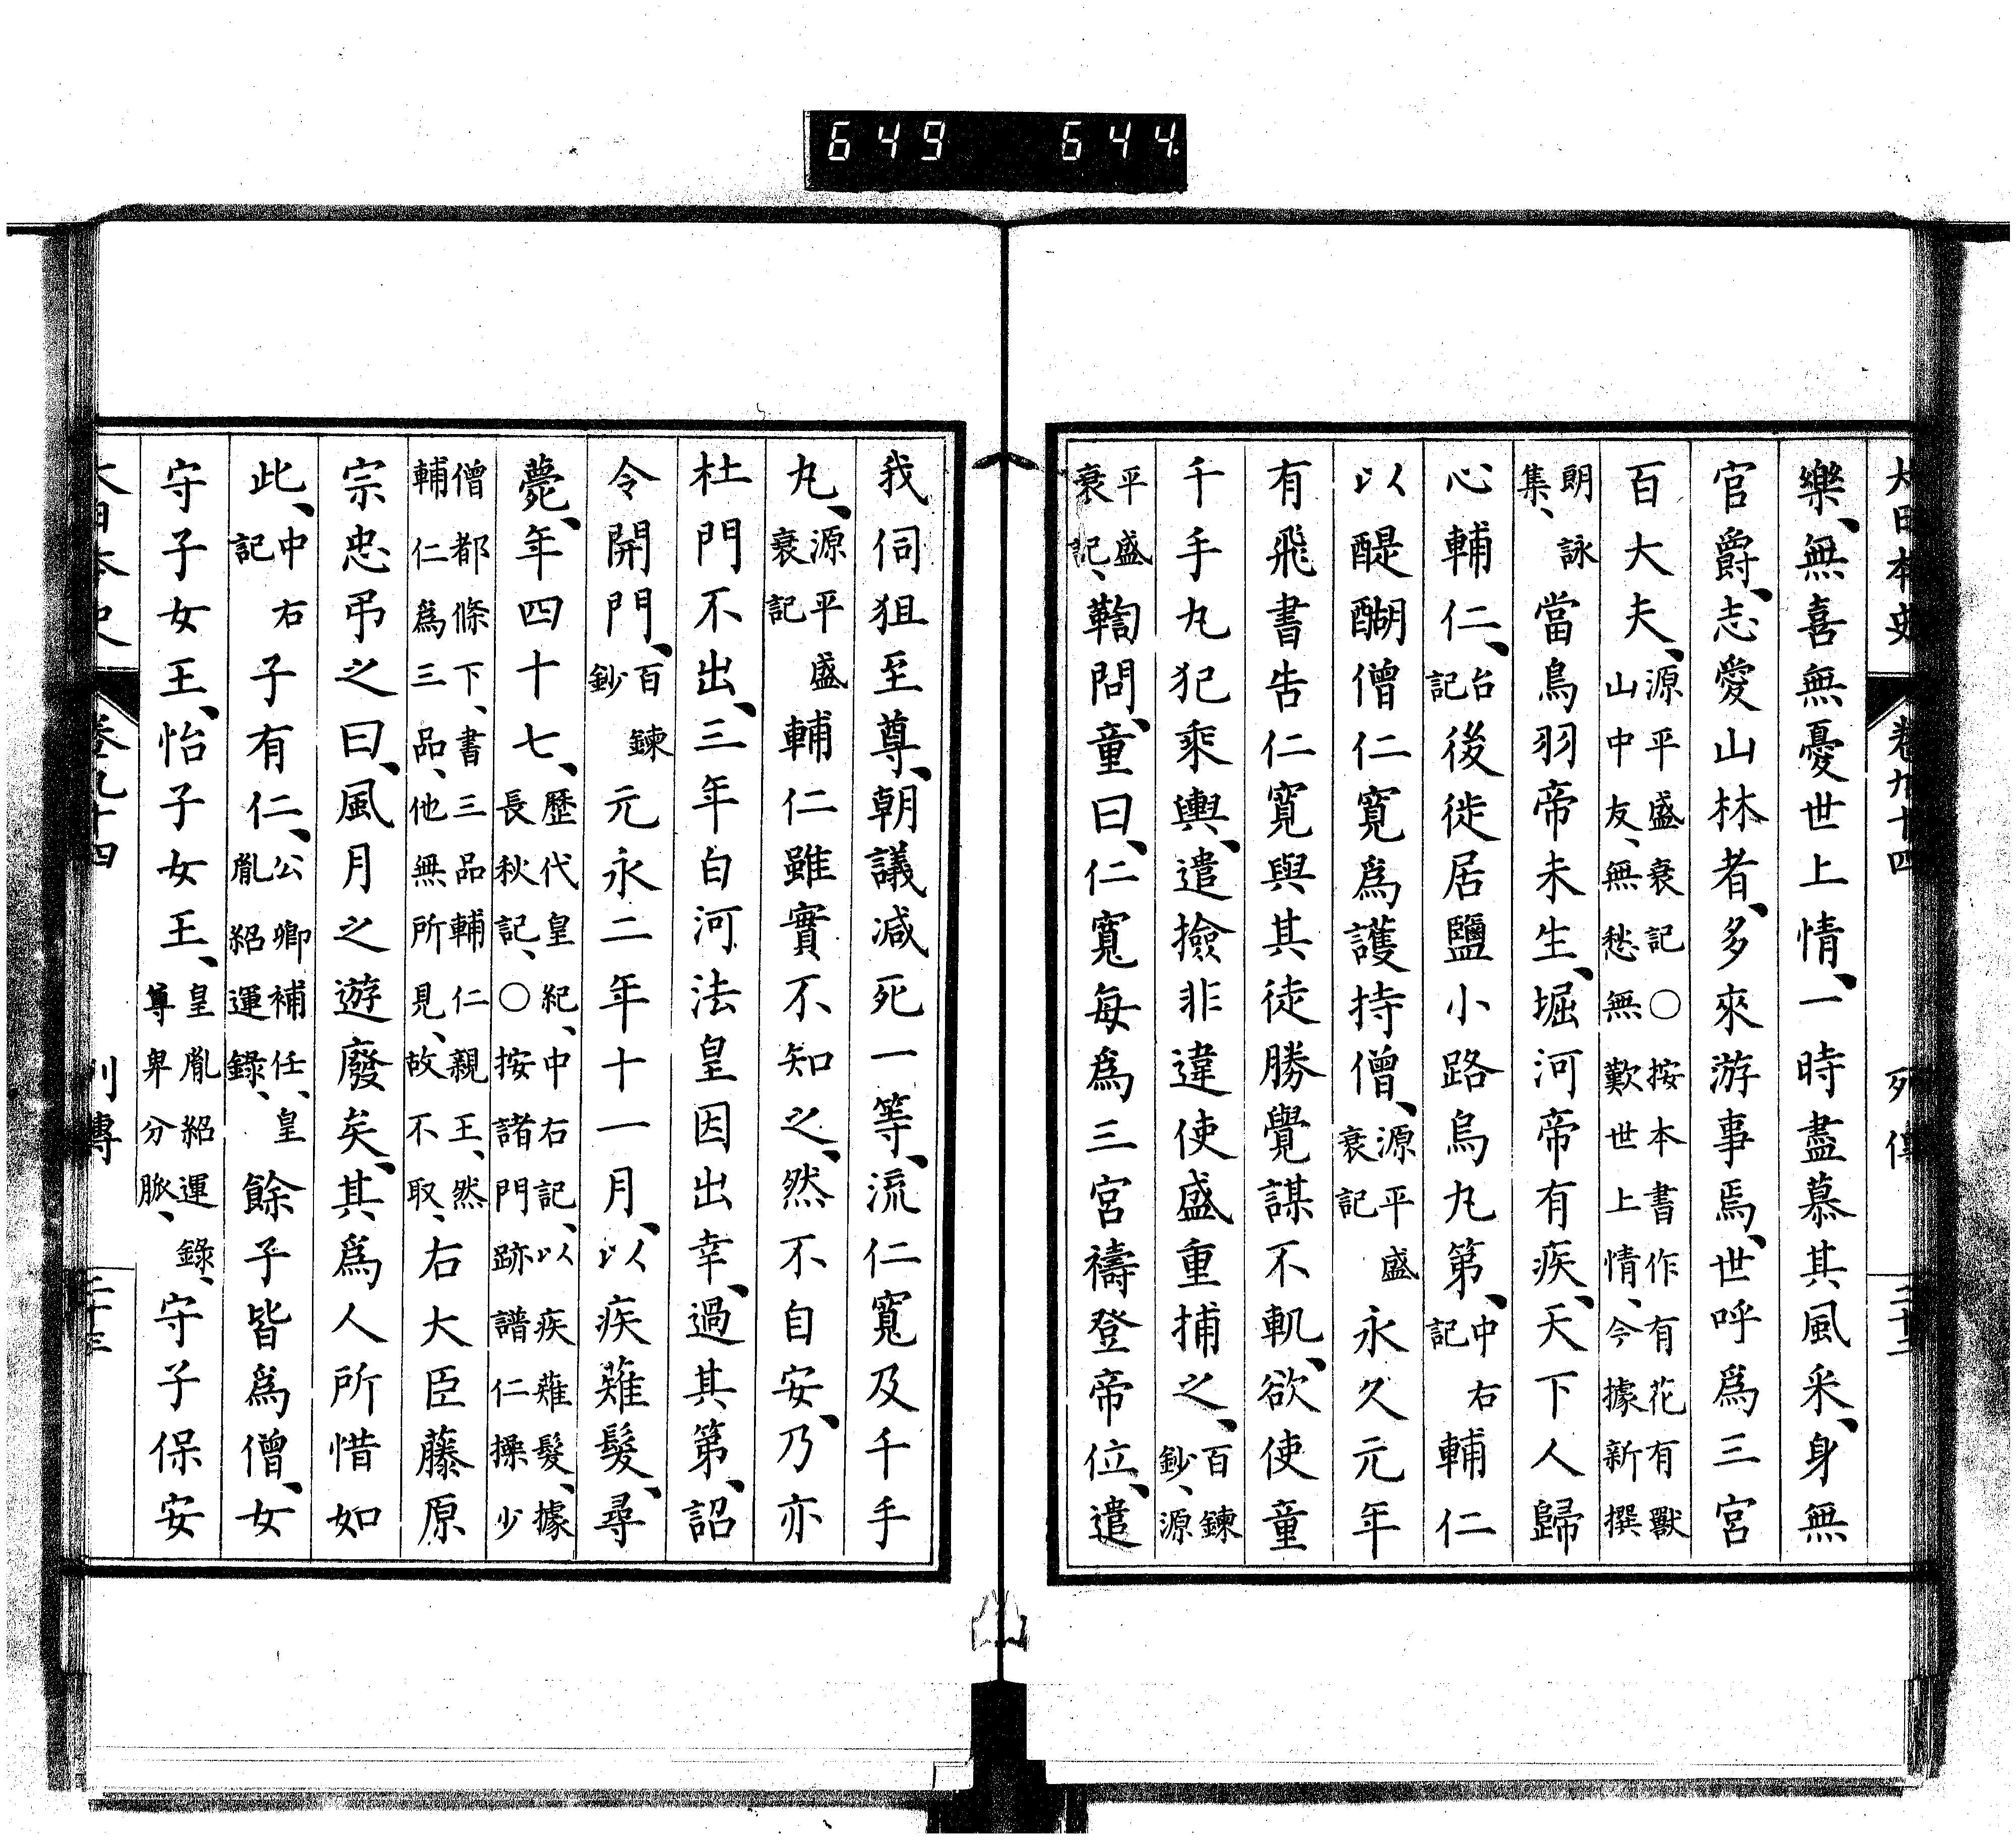 649 644
大日本史 卷九十四 列傳 二十二
樂、無喜無憂世上情、一時盡慕其風采、身無
官爵、志愛山林者、多來游事焉、世呼爲三宮
百大夫、源平盛衰記○按本書作有花有獸山中友、無愁無歎世上情、今據新撰
朗詠集、當鳥羽帝未生、堀河帝有疾、天下人歸
心輔仁、台記後徙居鹽小路烏丸第、中右記輔仁
以醍醐僧仁寛爲護持僧、源平盛衰記永久元年
有飛書告仁寛與其徒勝覺謀不軌、欲使童
千手丸犯乘輿、遣撿非違使盛重捕之、百鍊鈔、源
平盛衰記、鞫問、童曰、仁寬每爲三宮禱登帝位、遣
我伺狙至尊、朝議減死一等、流仁寬及千手
丸、源平盛衰記輔仁雖實不知之、然不自安、乃亦
杜門不出、三年白河法皇因出幸、過其第、詔
令開門、百鍊鈔元永二年十一月、以疾薙髮、尋
薨、年四十七、歷代皇紀、中右記、以疾薙髮、據長秋記、○按諸門跡譜仁操少
僧都條下、書三品輔仁親王、然輔仁爲三品、他無所見、故不取、右大臣藤原
宗忠弔之曰、風月之遊廢矣、其爲人所惜如
此、中右記子有仁、公卿補任、皇胤紹運錄、餘子皆爲僧、女
守子女王、怡子女王、皇胤紹運錄、尊卑分脈、守子保安
大日本史 卷九十四 列傳 二十三